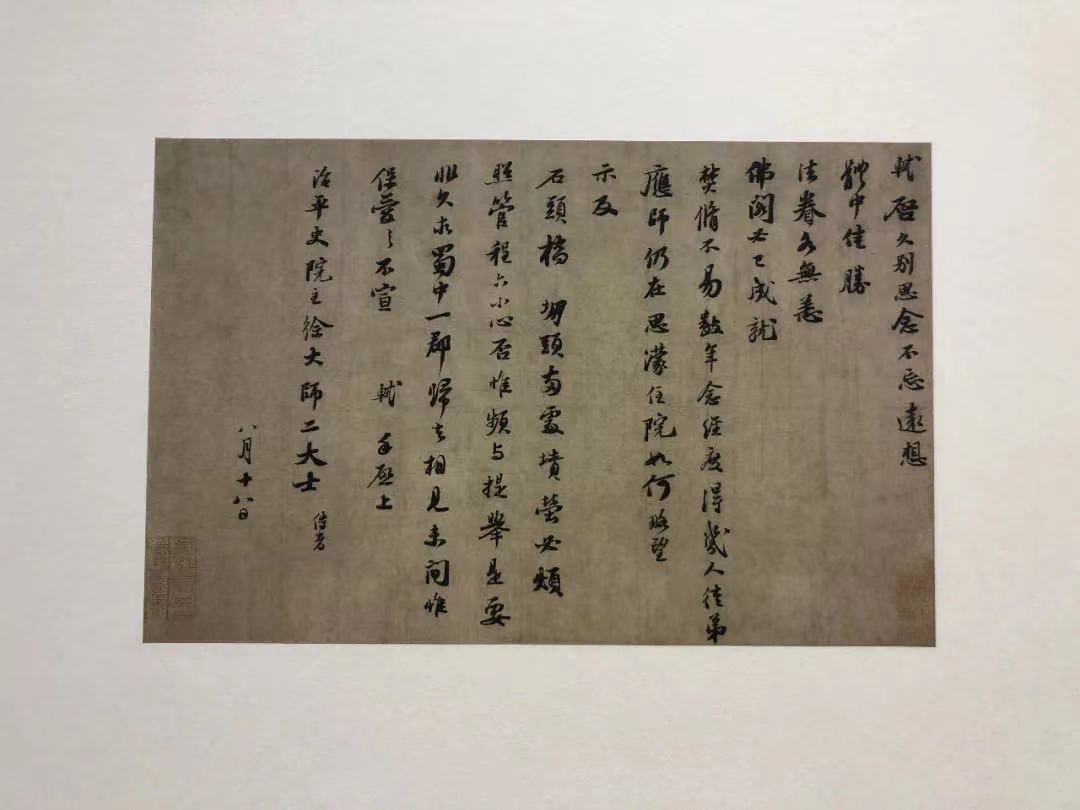 軾啓久別思念不忘遠想
體中佳勝
法眷各無恙
佛閣必已成就
焚脩不易數年念經度得幾人徒弟
應師仍在思濛住院如何略望
示及
石頭橋堋頭兩處墳塋必煩
照管程六小心否惟頻與提舉是要
非久求蜀中一郡歸去相見未間惟
保愛之不宣軾手啟上
治平史院主徐大師二大士侍者
八月十八日